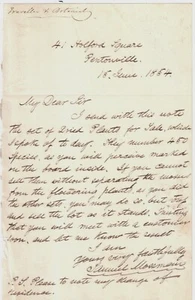 4, Holford Square
Pentonville
16 June 1854
My Dear Sir
I send with this note
the set of Dried Plants for Sale, which
I spoke of to day. They number 450
Species, as you will perceive marked
on the board inside. If you cannot
sell them without separating the mosses
from the flowering plants, as you did
the other sets, you may do so, but try
and sell the lot as it stands. Trusting
that you will meet with a customer
soon, and let me know the result
I am
Yours very faithfully
P.S. Please to note my change of
residence.